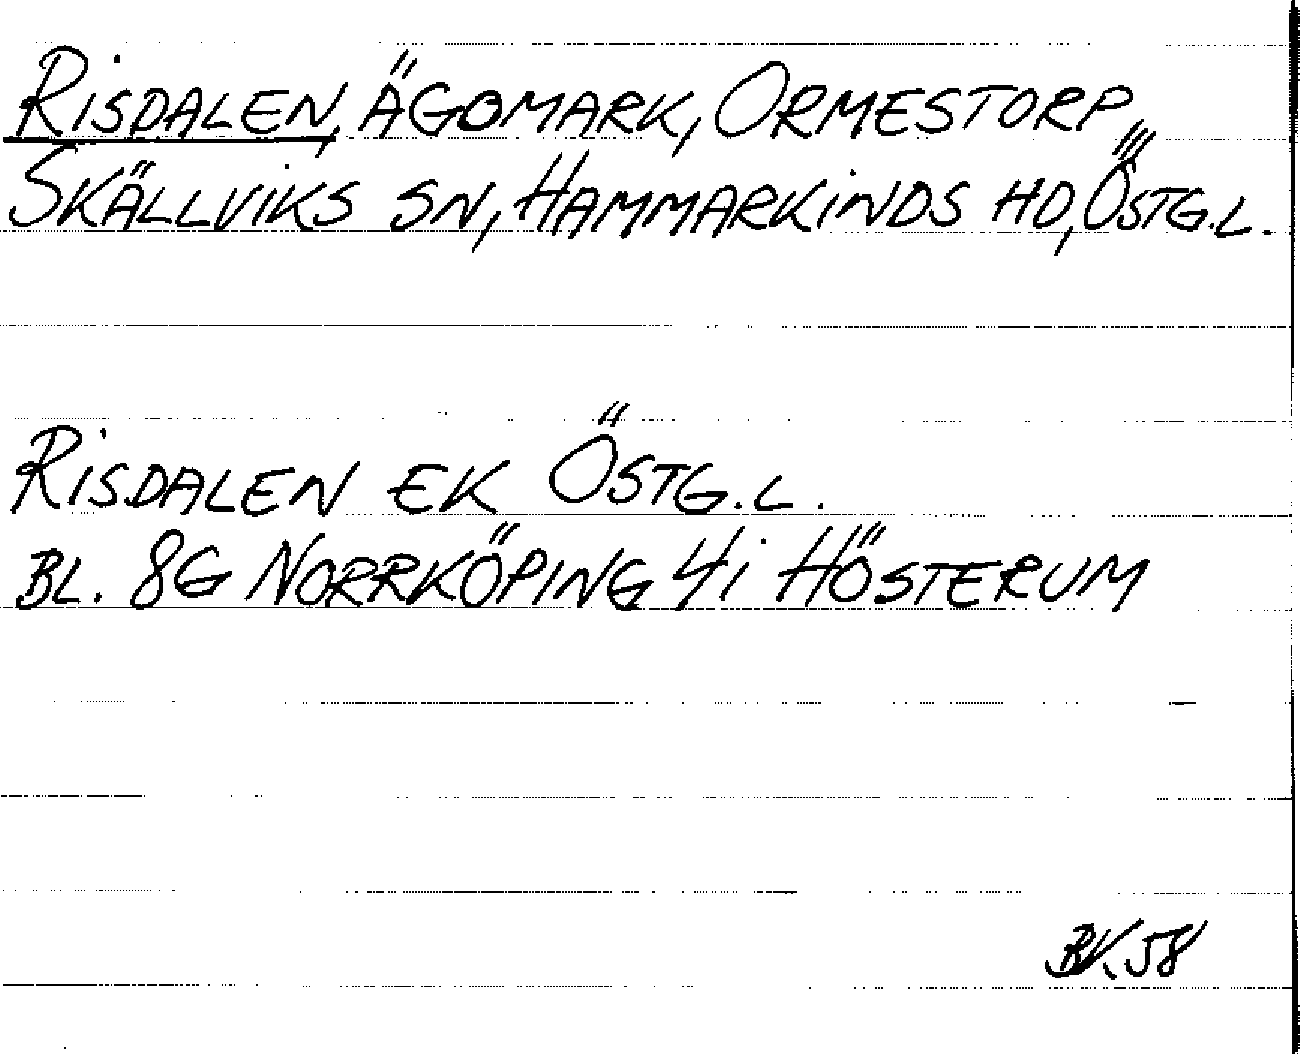 RISDALEN, ÄGOMARK, ORMESTORP,
SKÄLLVIKS SN, HAMMARKINDS HD, ÖSTG.L.
RISDALEN EK ÖSTG.L.
BL. 8G NORRKÖPING 4i HÖSTERUM
BK.58